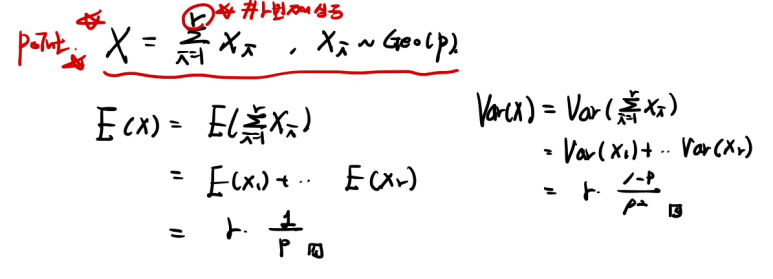 # r번째 성공
point. X = \sum_{i=1}^{r} X_i , X_i ~ Geo(p)
E(X) = E(\sum_{i=1}^{r} X_i)
= E(X_1) + ·· E(X_r)
= r · \frac{1}{p}
Var(X) = Var(\sum_{i=1}^{r} X_i)
= Var(X_1) + ·· Var(X_r)
= r · \frac{1-p}{p^2}